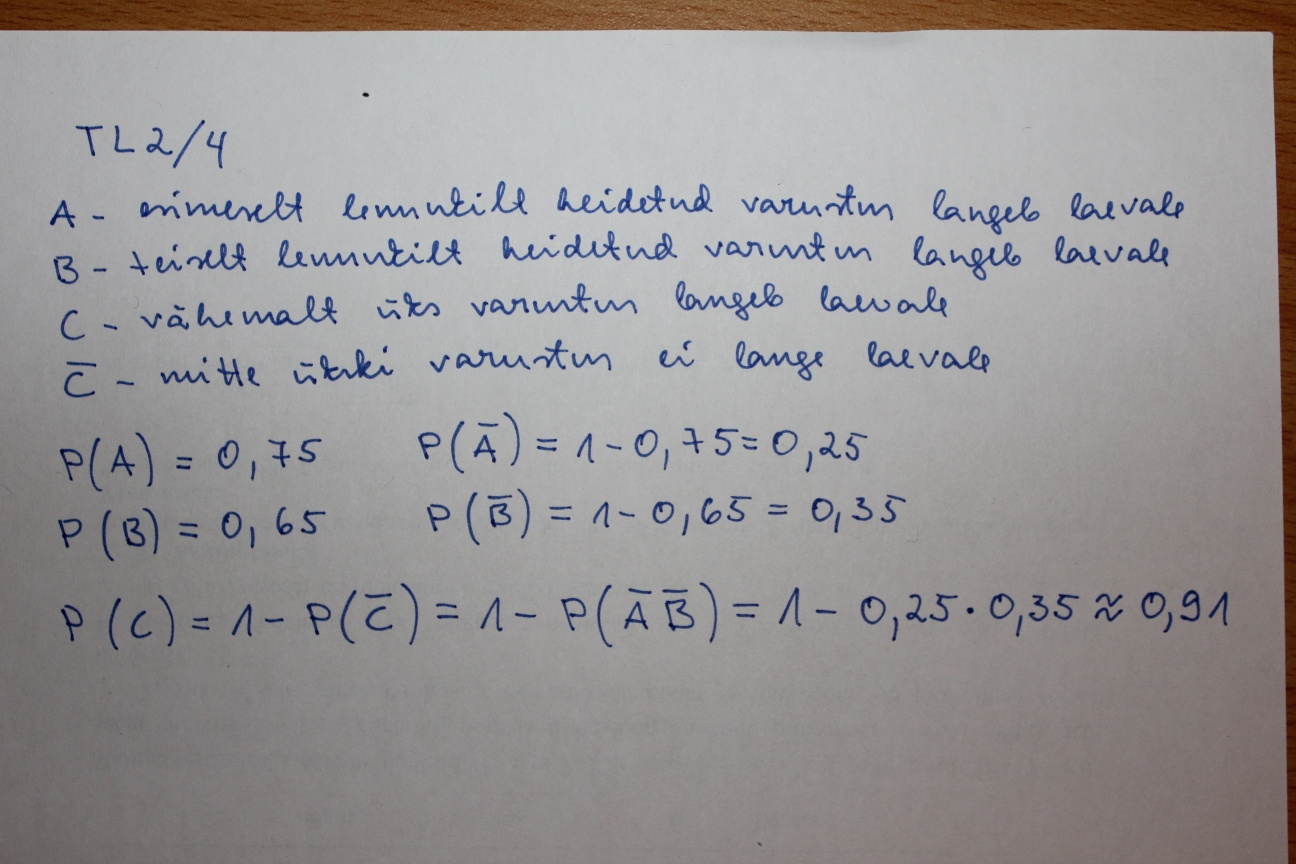 TL2/4
A - esimeselt lennukilt heidetud varustus langeb laevale
B - teiselt lennukilt heidetud varustus langeb laevale
C - vähemalt üks varustus langeb laevale
C̅ - mitte ükski varustus ei lange laevale
P(A) = 0,75 P(A̅) = 1-0,75=0,25
P(B) = 0,65 P(B̅) = 1-0,65 = 0,35
P(C) = 1- P(C̅) = 1- P(A̅ B̅) = 1- 0,25·0,35 ≈ 0,91